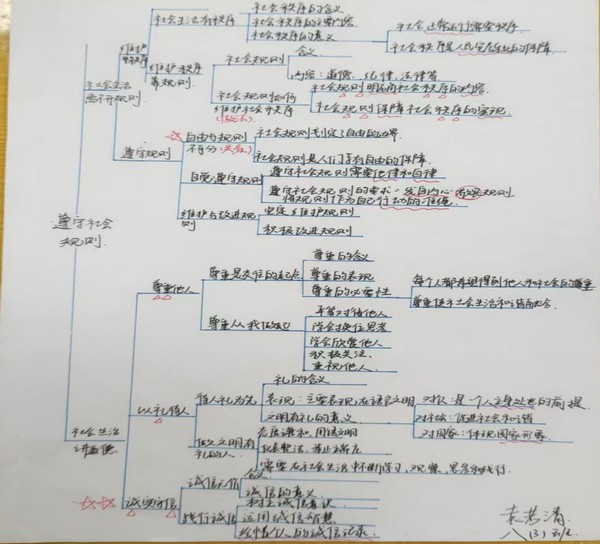 社会生活有秩序
社会秩序的含义
社会秩序的主要内容
社会秩序的意义
社会正常运行需要秩序
社会秩序是人民安居乐业的保障
维护秩序
靠规则
社会规则
含义
内容：道德、纪律、法律等
维护社会秩序
社会规则明确社会秩序的内容
社会规则保障社会秩序的实现
社会生活
离不开规则
遵守规则
自由与规则
不可分(关系)
社会规则划定了自由的边界
社会规则是人们享有自由的保障
自觉遵守规则
遵守社会规则需要他律和自律
遵守社会规则的要求：发自内心敬畏规则
将规则作为自己行动的准绳
维护与改进规
则
坚定维护规则
积极改进规则
遵守社会
规则
尊重他人
尊重是交往的起点
尊重的含义
尊重的表现
尊重的必要性
每个人都希望得到他人和社会的尊重
尊重使社会生活和谐融洽
尊重从我做起
平等对待他人
学会换位思考
学会欣赏他人
积极关注、
重视他人
社会生活
讲道德
以礼待人
待人礼为先
礼的含义
表现：主要表现在语言文明
文明有礼的意义
对个人：是一个人立身处世的前提
对社会：促进社会和谐
对国家：体现国家形象
做文明有
礼的人
态度谦和，用语文明
仪表整洁、举止端庄
需要在社会生活中不断学习、观察、思考和践行
诚实守信
诚信无价
含义
诚信的意义
践行诚信
树立诚信意识
运用诚信智慧
珍惜个人的诚信记录
袁若清